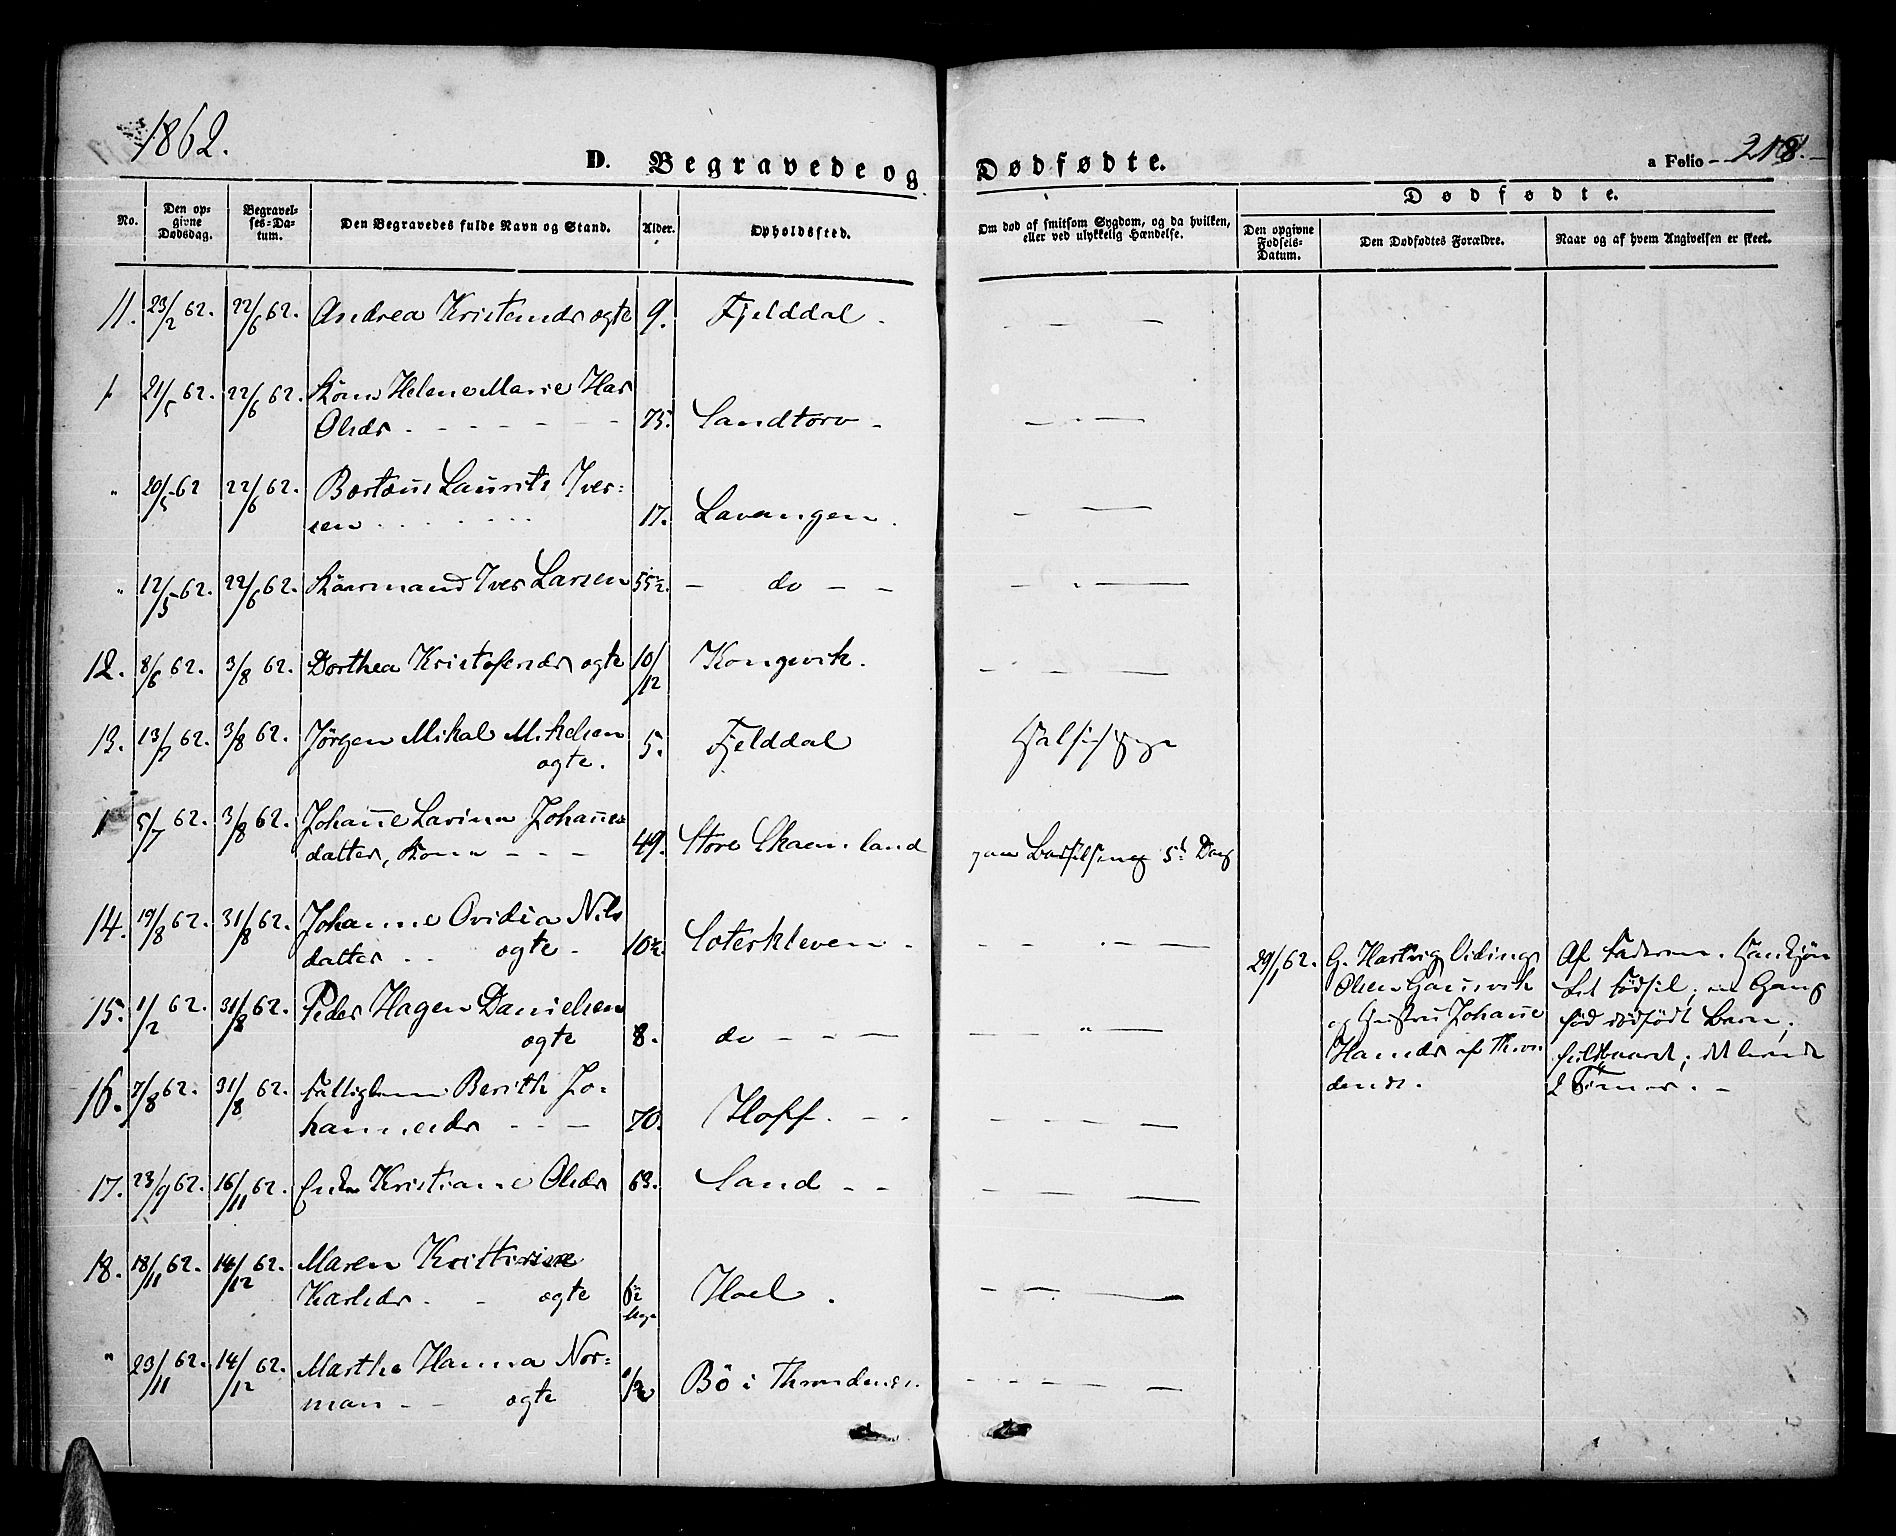 1862.
D. Begravede og Dødfødte.
a Folio 218.
Dødfødte.
No.
Den opgivne Dødsdag.
Begravelses-Datum.
Den Begravedes fulde Navn og Stand.
Alder.
Opholdssted.
Om død af smitsom Sygdom, og da hvilken,
eller ved ulykkelig Hændelse.
Den opgivne Fødsels-Datum.
Den Dødfødtes Forældre.
Naar og af hvem Angivelsen er skeet.
11. 23/2 62. 22/6 62. Andrea Kristends ægte 9. Fjelddal.
21/5 62. 22/6 62. Kone Helene Marie Has
Olsdr 75. Sandtorv
" 20/5 62 22/6 62. Laurits Iver=
sen 17. Lavangen.
" 12/5 62. 22/6 62. Kaarmand Iver Larsen 55½. do
12. 8/6 62. 3/8 62. Dorthea Kristofersdr ægte 10/12 Kongsvik.
13. 13/7 62. 3/8 62. Jørgen Mikal Mikelsen
ægte. 5. Fjelddal Halssyge
5/7 62. 3/8 62. Johanne Lavina Johannes
datter, Kone 49. Store Skaanland Barselseng 5te Dag
14. 19/8 62. 31/8 62. Johanne Ovidia Nils
datter ægte 10½. Soterkleven
15. 1/2 62. 31/8 62. Peder Hagen Danielsen
ægte 8. do "
16. 7/8 62. 31/8 62. Fattiglem Berith Jo-
hannesdr 70. Hoff.
17. 23/9 62. 16/11 62. Enke Kristiane Olsdr 63. Sand
18. 18/11 62. 14/12 62. Maren
Karlsdr ægte 6½ Uge Hoel.
" 23/11 62. 14/12 62. Marthe Hanna Nor=
man ægte ½ Bö i Throndenes.
29/1 62. G. Hartvig Vidings
Olsen Gausvik
og Hustru Johanne
Hansdr af Thron
denes.
Af Faderen.
Fødsel; en Gang
død født Barn;
2 Tömer.